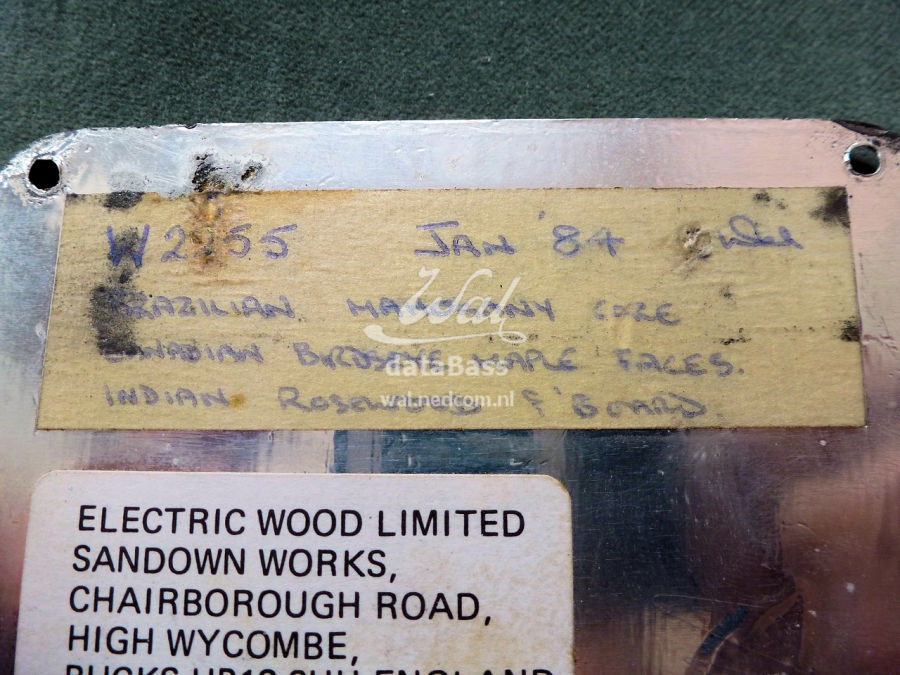 W2155 JAN '84
BRAZILIAN MAHOGANY CORE
CANADIAN BIRDSEYE MAPLE FACES.
INDIAN ROSEWOOD F'BOARD.
Wal
dataBass
wal.nedcom.nl
ELECTRIC WOOD LIMITED
SANDOWN WORKS,
CHAIRBOROUGH ROAD,
HIGH WYCOMBE,
BUCKS HP12 3HH ENGLAND